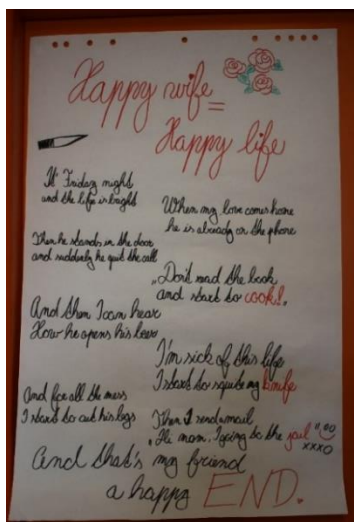 Happy wife =
Happy life
It' Friday night
and the life is bright
When my love comes home
he is already on the phone
Then he stands in the door
and suddenly he quit the call
„Don't read the book
and start to cook!"
And then I can hear
How he opens his beer
I'm sick of this life
I start to my knife
And for all the mess
I start to cut his legs
Then I send a mail
„Hi mom, I going to the jail"
xxxo
And that's my friend
a happy END.